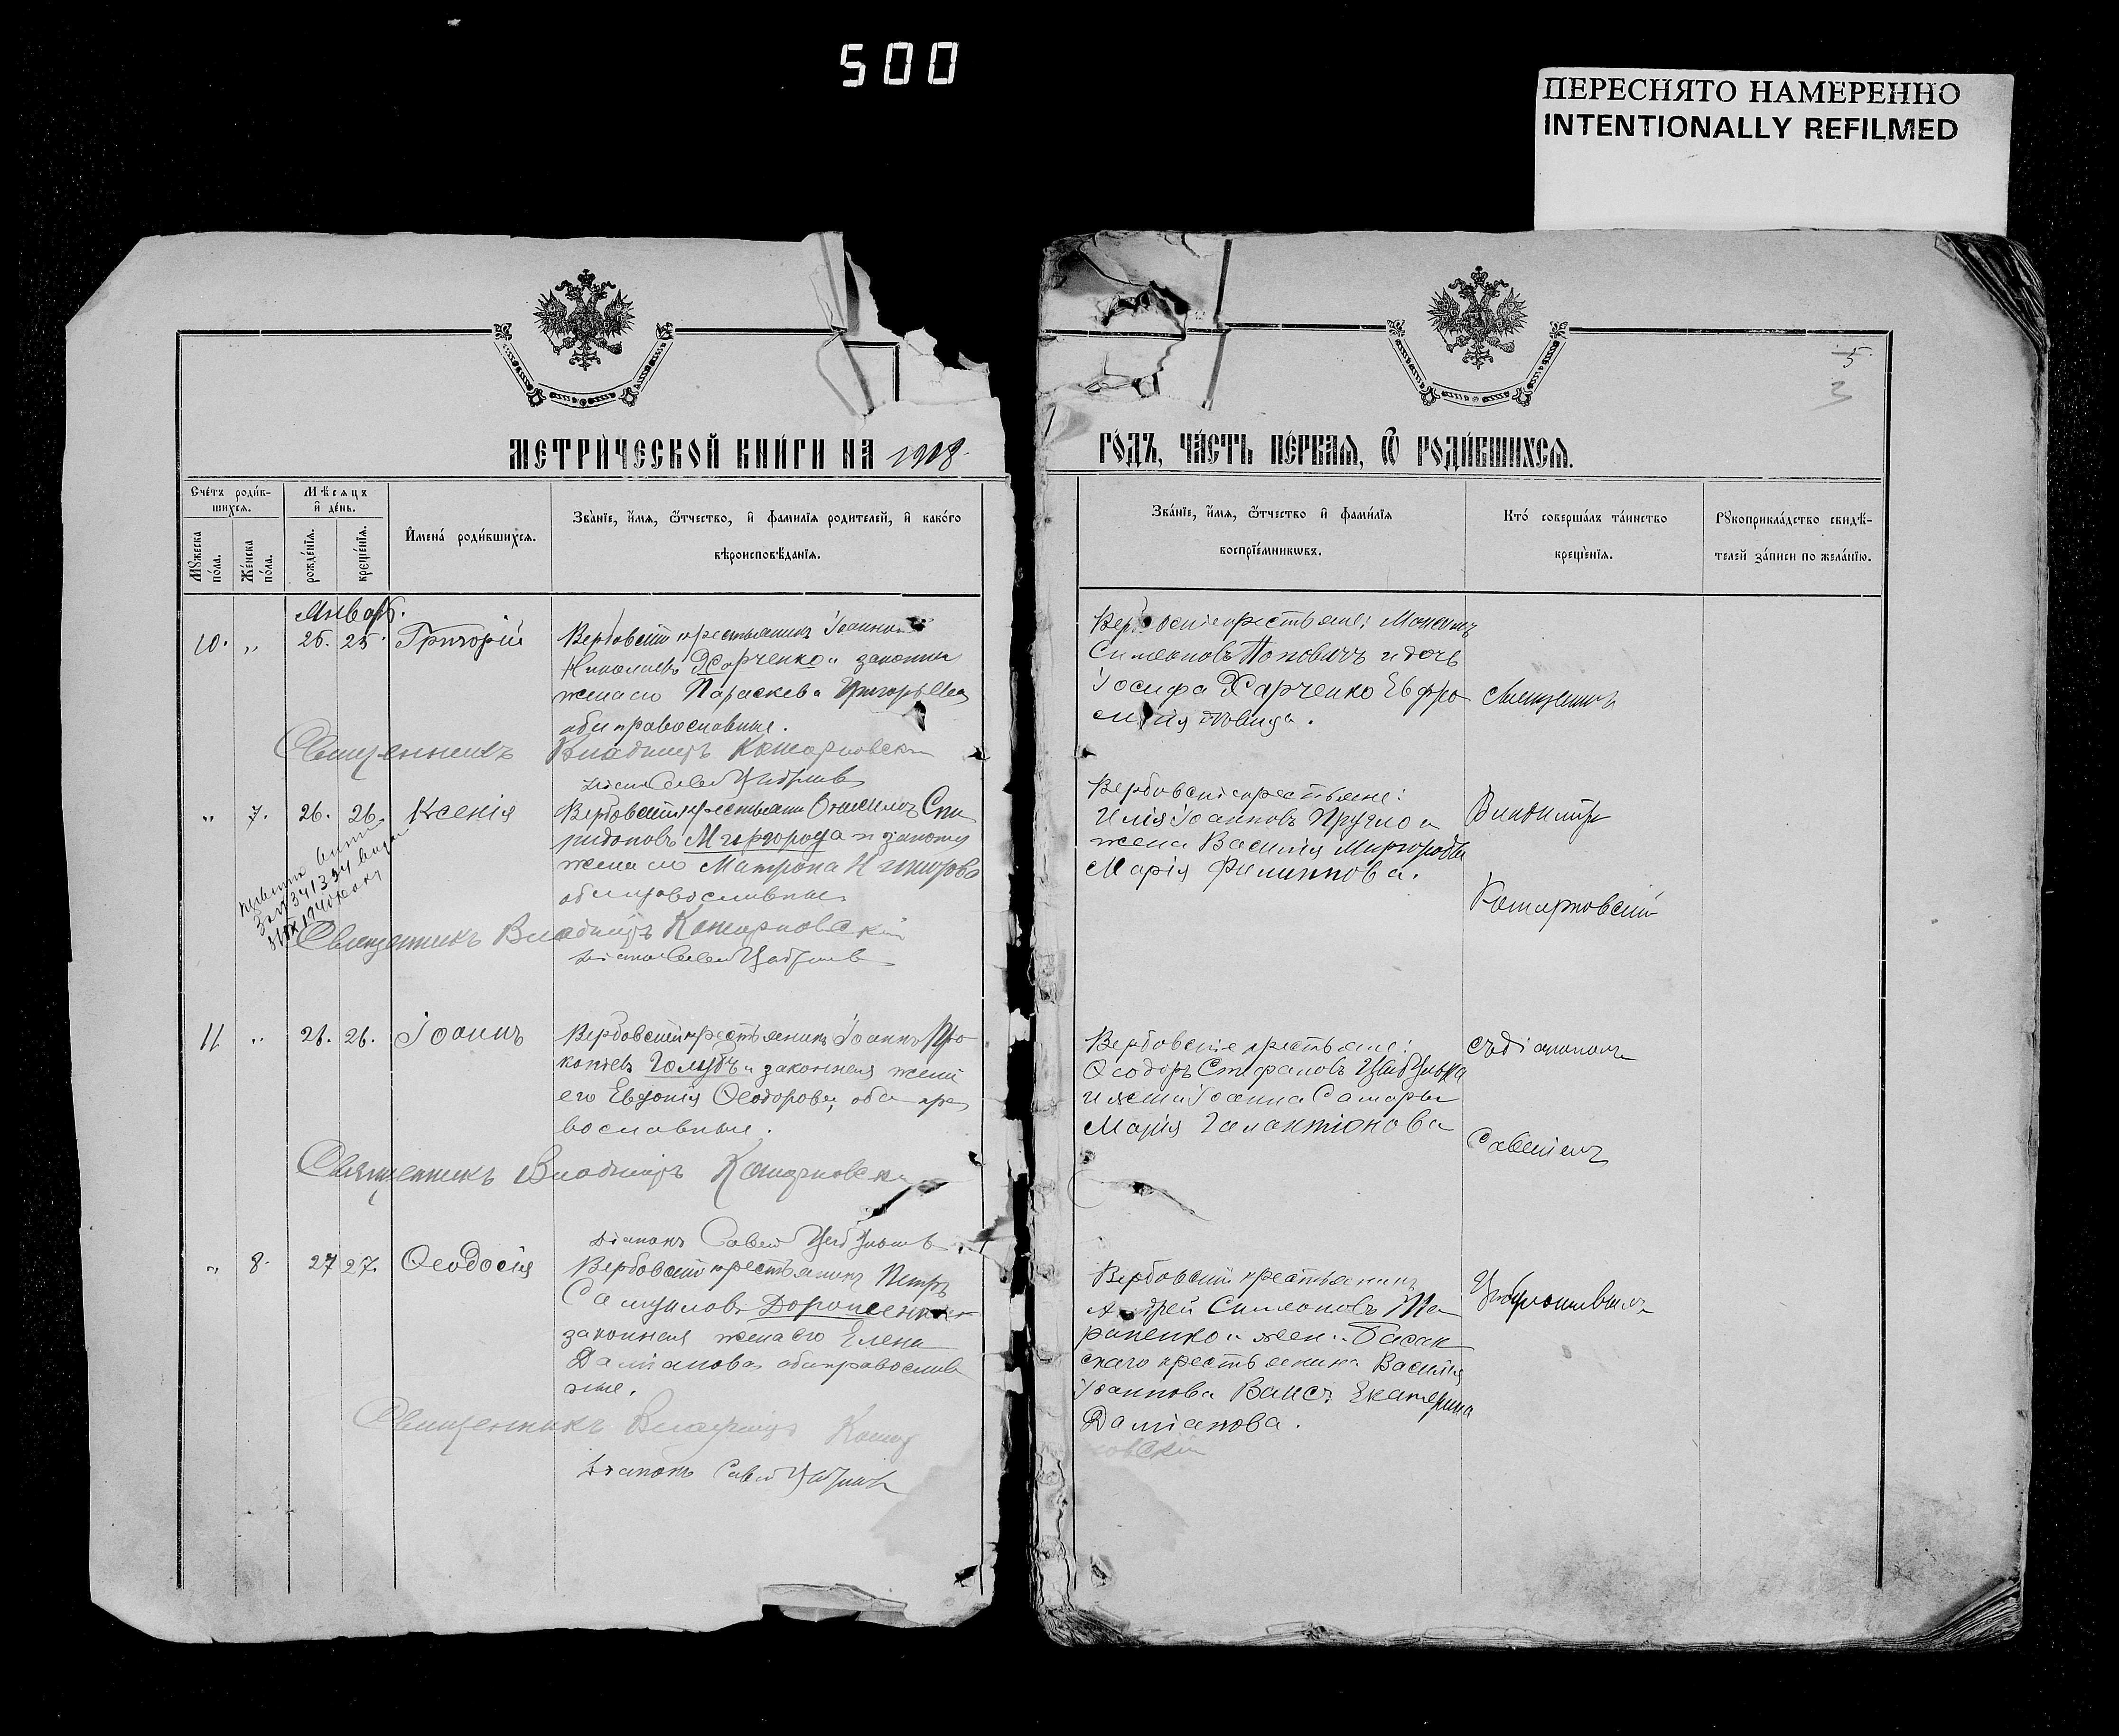 500
ПЕРЕСНЯТО НАМЕРЕННО
INTENTIONALLY REFILMED
5
3
МЕТРИ́ЧЕСКОЙ КНИ́ГИ НА 1908
ГО́ДЪ, ЧА́СТЬ ПЕ́РВАЯ, Ѿ РОДИ́ВШИХСЯ.
Сче́тъ роди́в-
шихся.
Мѣсяцъ
и де́нь.
Му́жеска по́ла.
Же́нска по́ла.
рожде́нїя.
креще́нїя.
Имена̀ роди́вшихся.
Зва́нїе, и́мя, ѿтчество, и фамилїя родителей, и како́го
вѣроисповѣ́данїя.
Зва́нїе, и́мя, ѿтчество и фами́лїя
воспрїе́мниковъ.
Кто̀ соверша́лъ та́инство
креще́нїя.
Рукоприкла́дство свидѣ́-
телей за́писи по жела́нїю.
Январь.
10. „ 25. 25. Григорій
Вербовскій крестьянинъ Іоаннъ
Николаевъ Харченко и законная
жена его Параскева Григорьева
оба православные.
Священникъ Владиміръ Комарновскій
Вербовскіе крестьяне: Максимъ
Симеоновъ Поповичъ и дочь
Іосифа Харченко Евфро-
синія дѣвица.
Священникъ
„ 7. 26. 26. Ксенія
Вербовскій крестьянинъ Онисимъ Спи
ридоновъ Миргорода и законная
жена его Матрона Никифорова
оба православные
Священникъ Владиміръ Комарновскій
Вербовскіе крестьяне:
Илія Іоанновъ Кругло и
жена Василія Миргорода
Марія Филиппова.
Владиміръ
Комарновскій
11 „ 26. 26. Іоаннъ
Вербовскій крестьянинъ Іоаннъ Про
копіевъ Голубъ и законная жена
его Евдокія Ѳеодорова, оба пра
вославные.
Священникъ Владиміръ Комарновскій
Діаконъ Савей
Вербовскіе крестьяне:
Ѳеодоръ Стефановъ
и жена Іоанна Самары
Марія Галактіонова
съ діакономъ
Савеіемъ
„ 8. 27 27. Ѳеодосія
Вербовскій крестьянинъ Петръ
Самуиловъ Дорошенко и
законная жена его Елена
Даміанова оба православ
ные.
Священникъ Владиміръ Комар
новскій
Діаконъ Савей
Вербовскій крестьянинъ
Андрей Симеоновъ Та-
раненко и жена Басан
скаго крестьянина Василія
Іоаннова Ваисъ Екатерина
Даміанова.